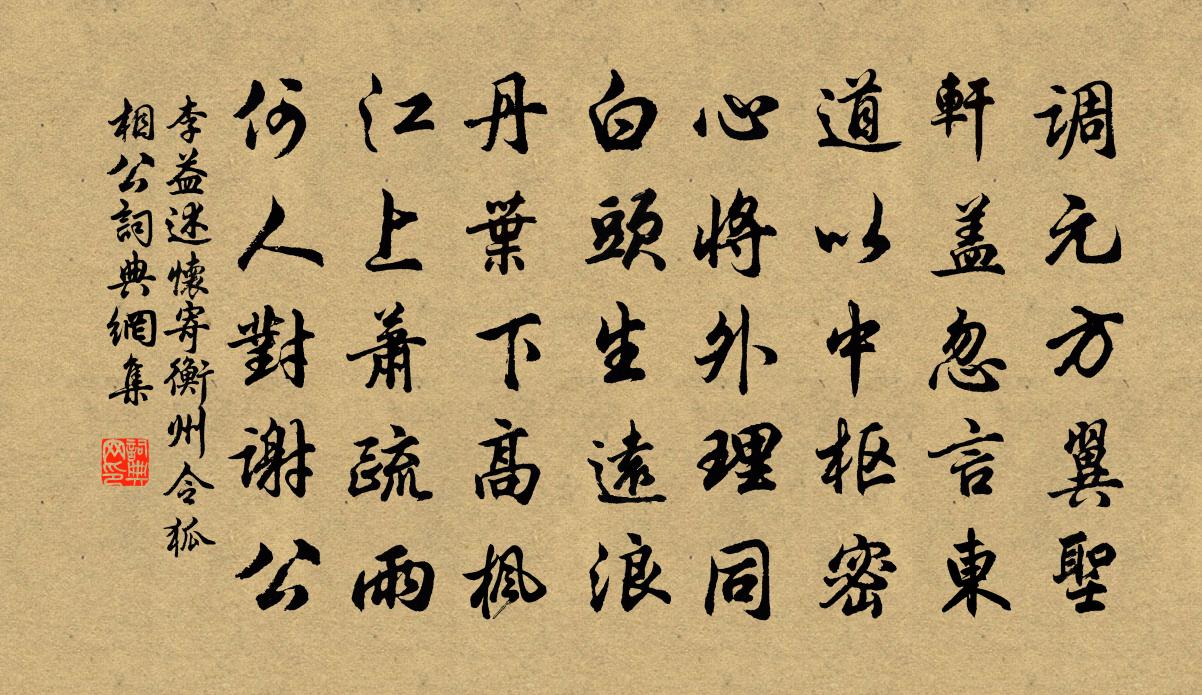 调元方翼聖
軒盖忽言東
道以中枢密
心将外理同
白頭生遠浪
丹葉下高楓
江上萧疏雨
何人對謝公
李益述懷寄衡州令狐
相公詞典網集
詞典
网印